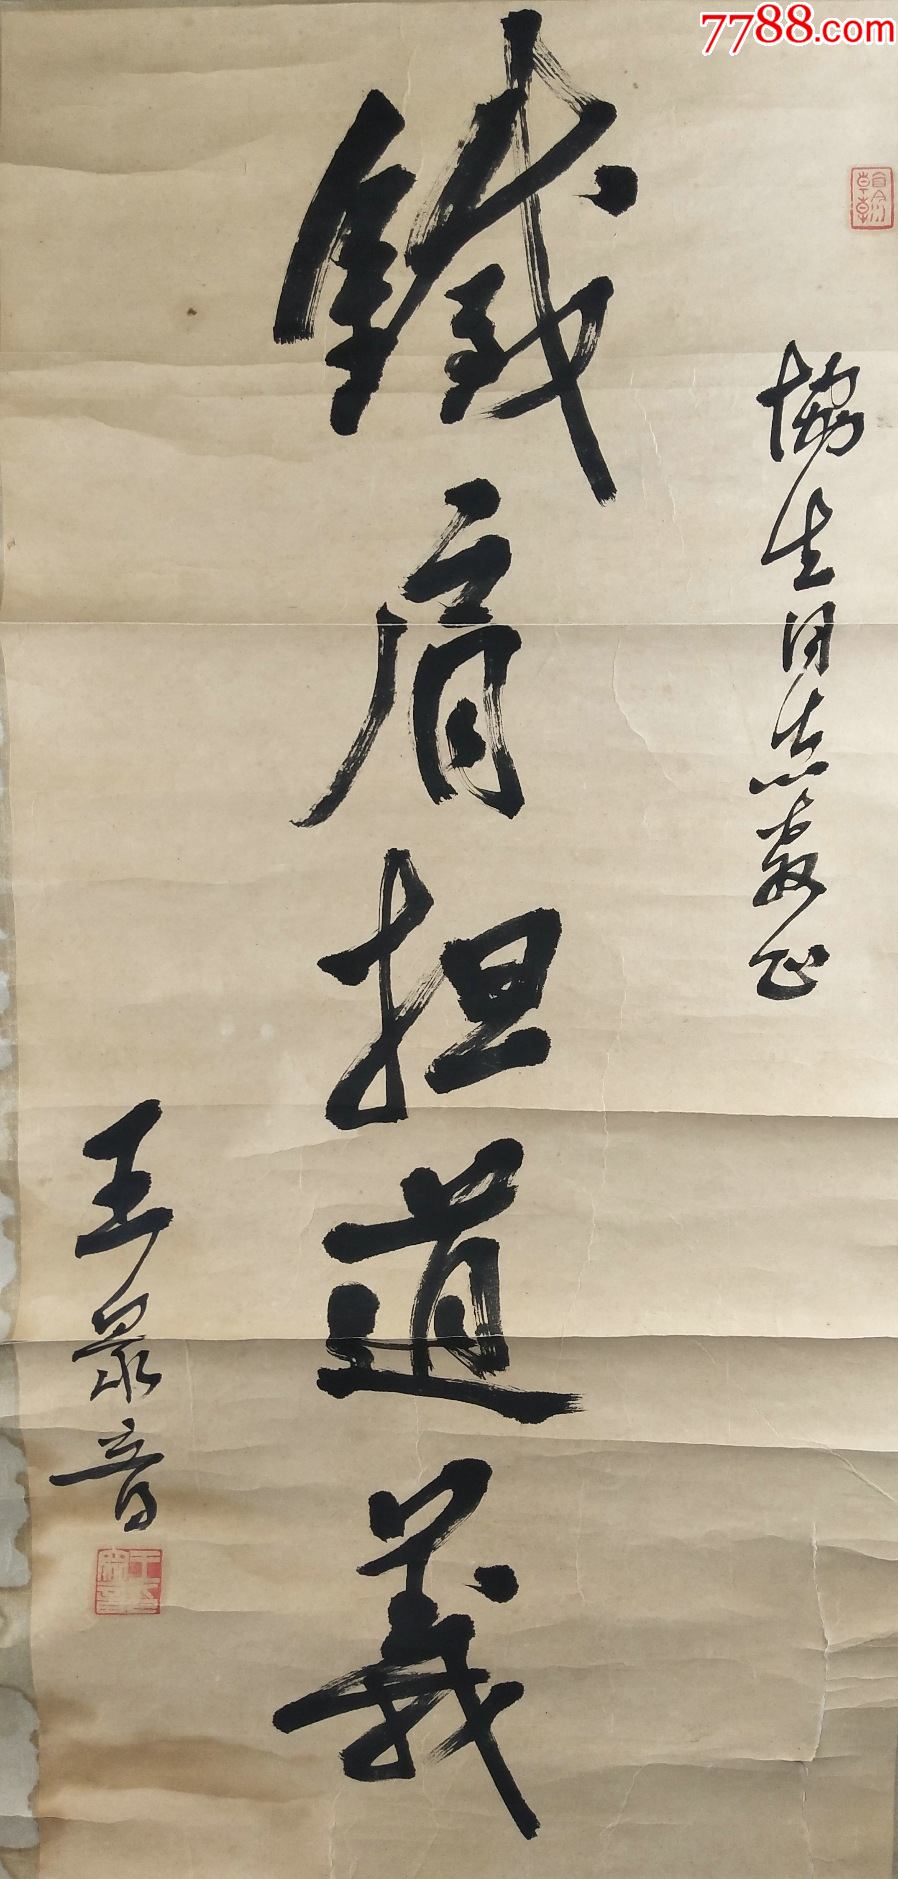 7788.com
協生同志教正
鐵肩担道義
王景音